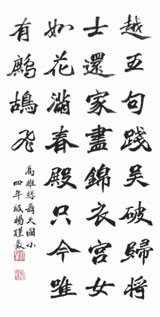 越王句踐吳破歸將
士還家盡錦衣宮女
如花滿春殿只今唯
有鷓鴣飛
高雄縣天國小
四年級楊